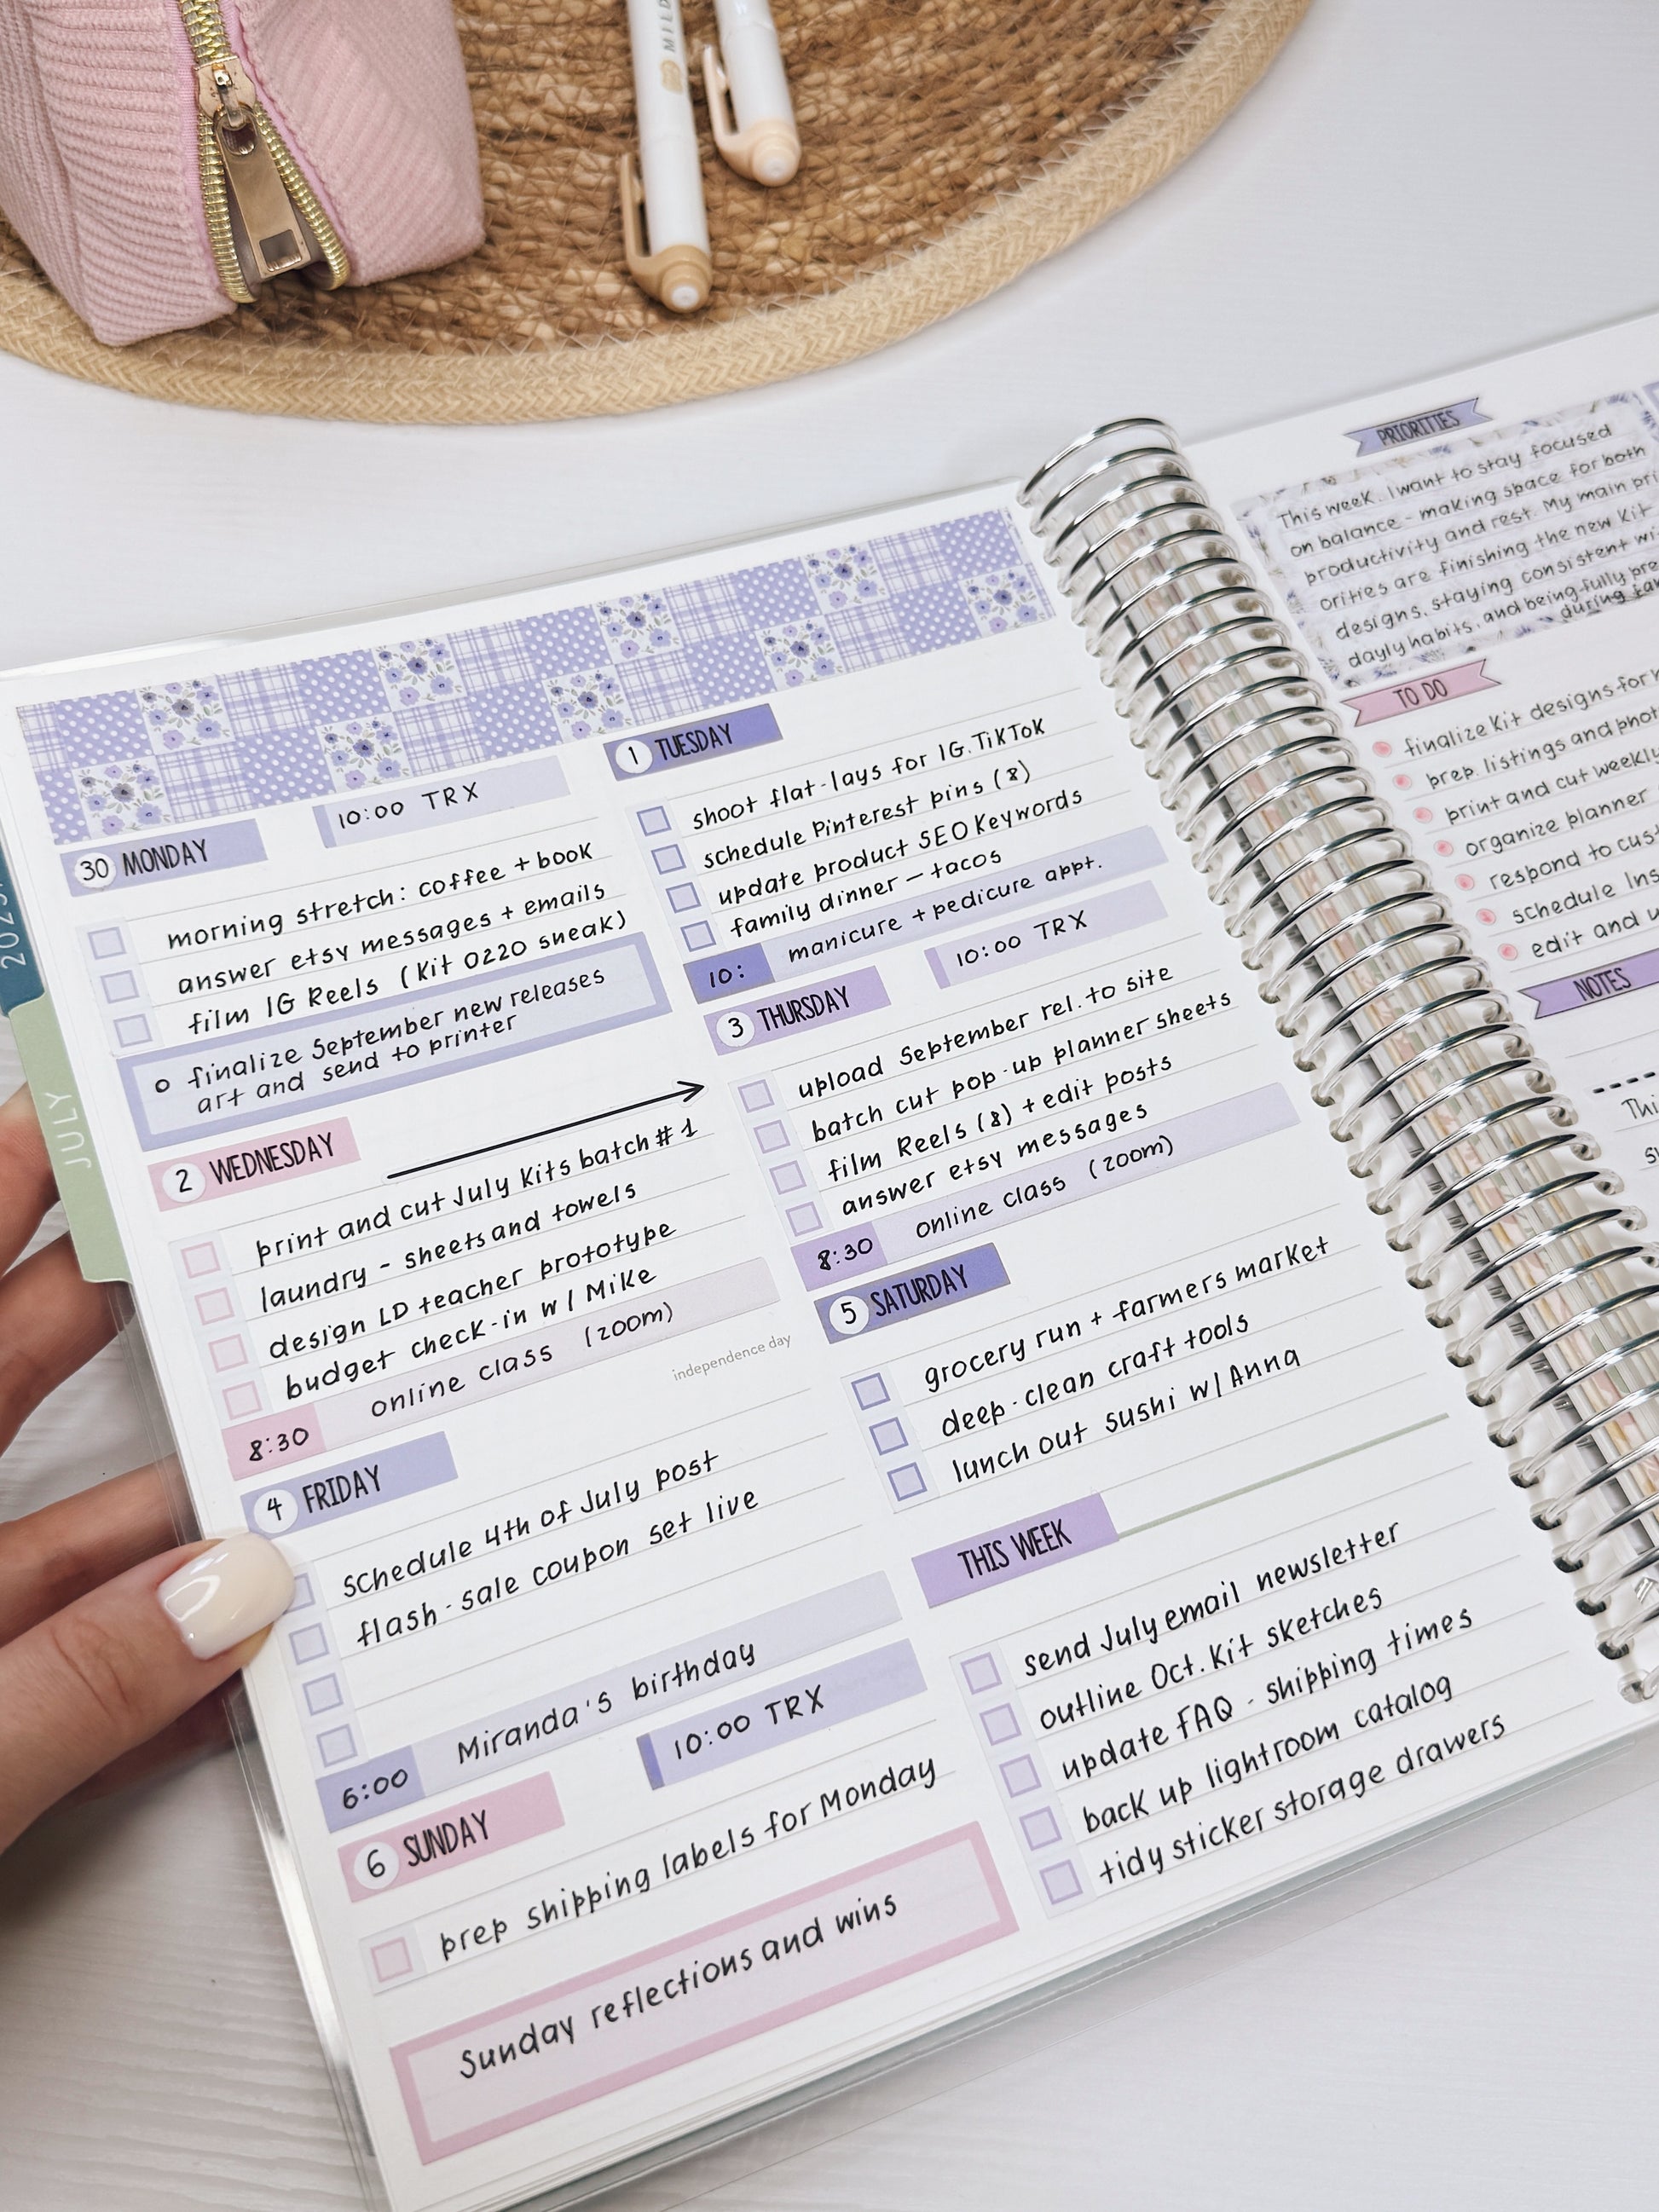 MILD
2025
JULY
30 MONDAY
10:00 TRX
morning stretch: coffee + book
answer etsy messages + emails
film IG Reels (Kit 0220 sneak)
o finalize September new releases
art and send to printer
1 TUESDAY
shoot flat-lays for IG.TikTok
schedule Pinterest pins (8)
update product SEO Keywords
family dinner – tacos
10: manicure + pedicure appt.
2 WEDNESDAY
print and cut July Kits batch #1
laundry - sheets and towels
design LD teacher prototype
budget check-in w/ Mike
8:30 online class (zoom)
3 THURSDAY
10:00 TRX
upload September rel. to site
batch cut pop-up planner sheets
film Reels (8) + edit posts
answer etsy messages
8:30 online class (zoom)
independence day
4 FRIDAY
schedule 4th of July post
flash-sale coupon set live
6:00 Miranda's birthday
5 SATURDAY
grocery run + farmers market
deep-clean craft tools
lunch out sushi w/ Anna
6 SUNDAY
10:00 TRX
prep shipping labels for Monday
Sunday reflections and wins
THIS WEEK
send July email newsletter
outline Oct. Kit sketches
update FAQ - shipping times
back up lightroom catalog
tidy sticker storage drawers
PRIORITIES
This week, I want to stay focused
on balance - making space for both
productivity and rest. My main pri
orities are finishing the new Kit
designs, staying consistent wi
dayly habits, and being fully pre
during
TO DO
finalize Kit designs for
prep. listings and phot
print and cut weekly
organize planner
respond to cus
schedule Ins
edit and u
NOTES
Thi